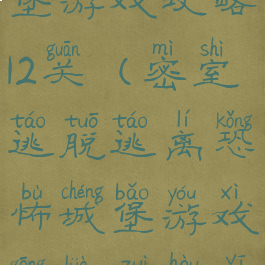 堡游戏攻略
guān mì shì
12关(密室
táo tuō táo lí kǒng
逃脱逃离恐
bù chéng bǎo yóu xì
怖城堡游戏